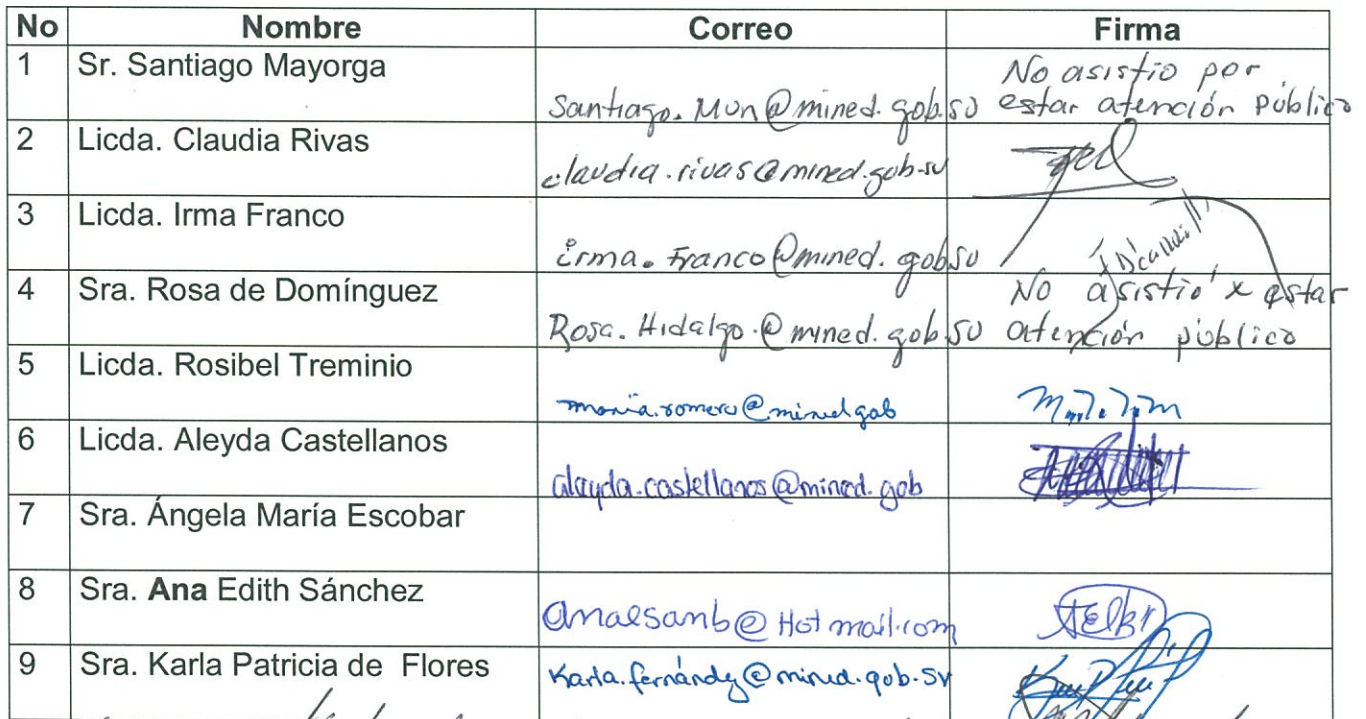 No Nombre Correo Firma
1 Sr. Santiago Mayorga No asistio por
Santiago. Mon@mined.gob.sv estar atención público
2 Licda. Claudia Rivas
claudia.rivas@mined.gob.sv
3 Licda. Irma Franco
irma. Franco@mined. gob sv
4 Sra. Rosa de Domínguez No asistió x estar
Rosa. Hidalgo.@mined.gob.sv atención público
5 Licda. Rosibel Treminio
maria.romero@mined gob
6 Licda. Aleyda Castellanos
alayda.castellanos@mined.gob
7 Sra. Ángela María Escobar
8 Sra. Ana Edith Sánchez
anaesanb@Hotmail.com
9 Sra. Karla Patricia de Flores Karla.fernández@mined.gob.sv